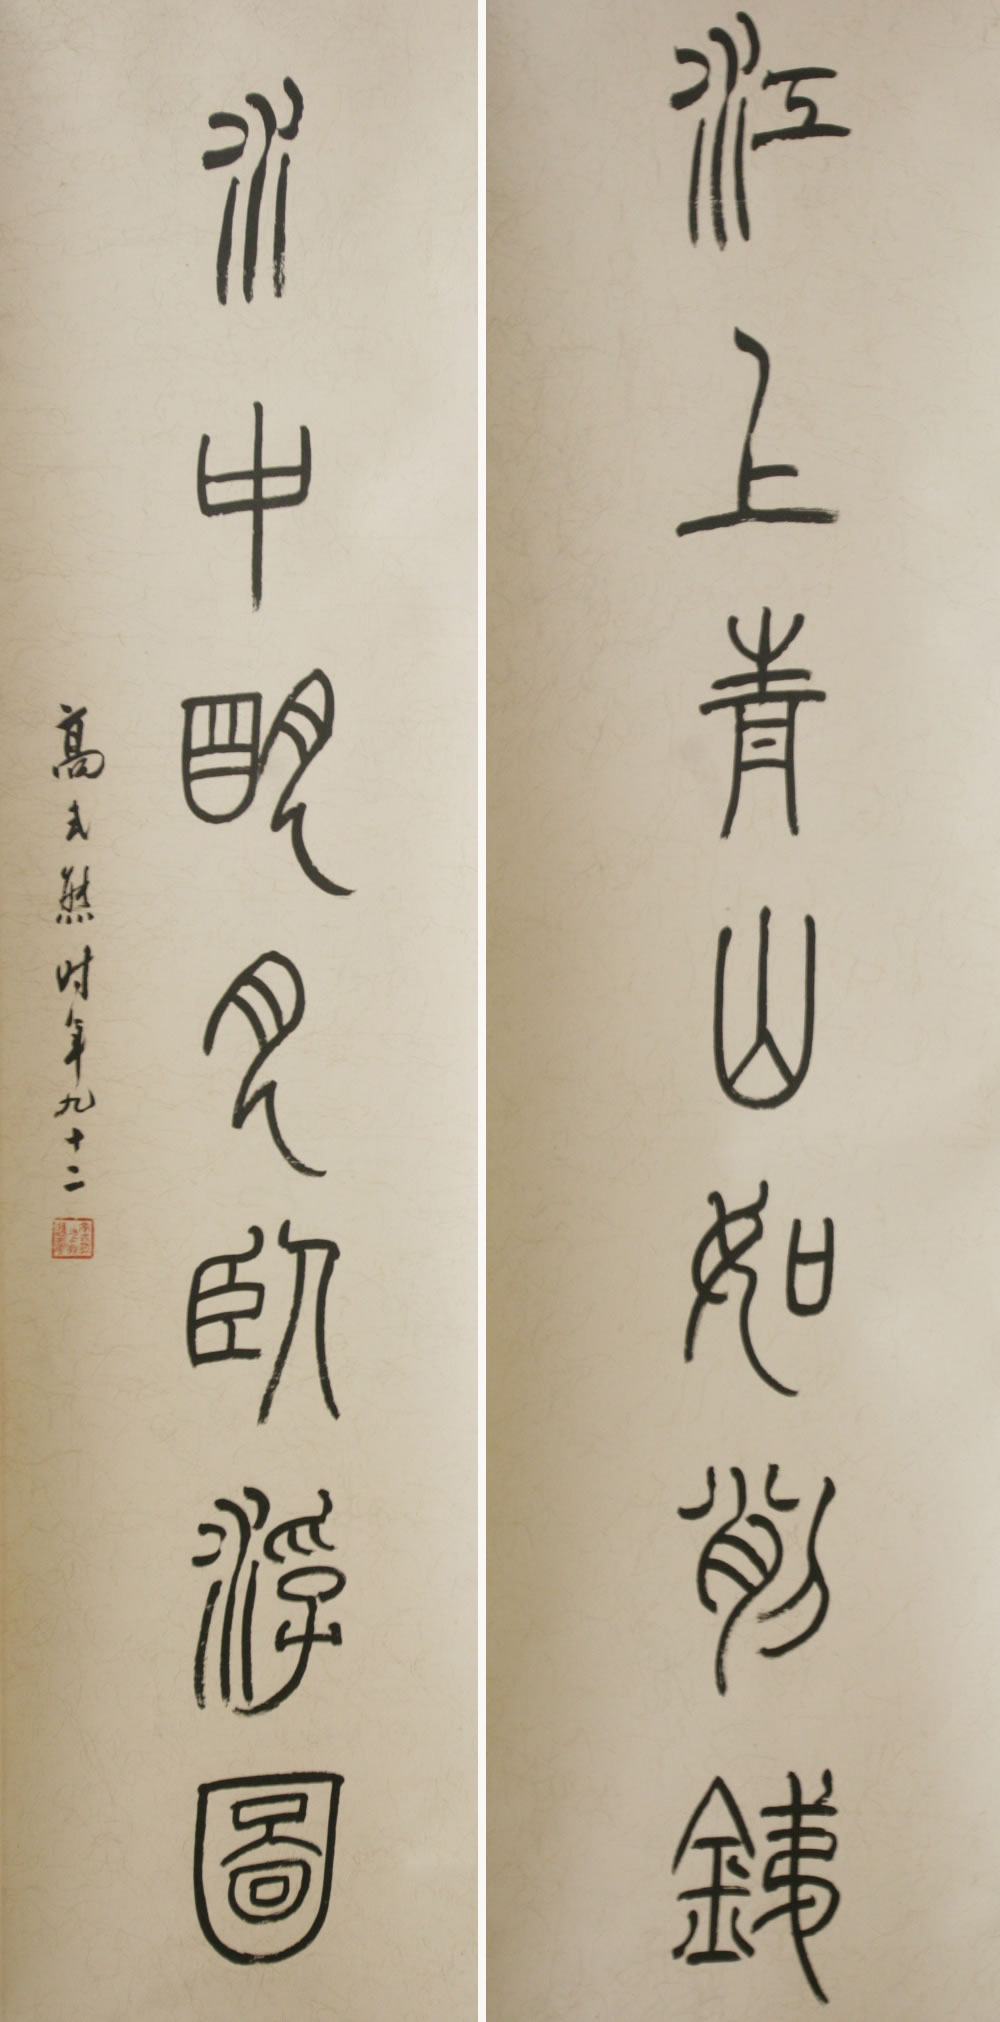 江上青山如削銕
水中明月臥浮圖
高式熊时年九十二